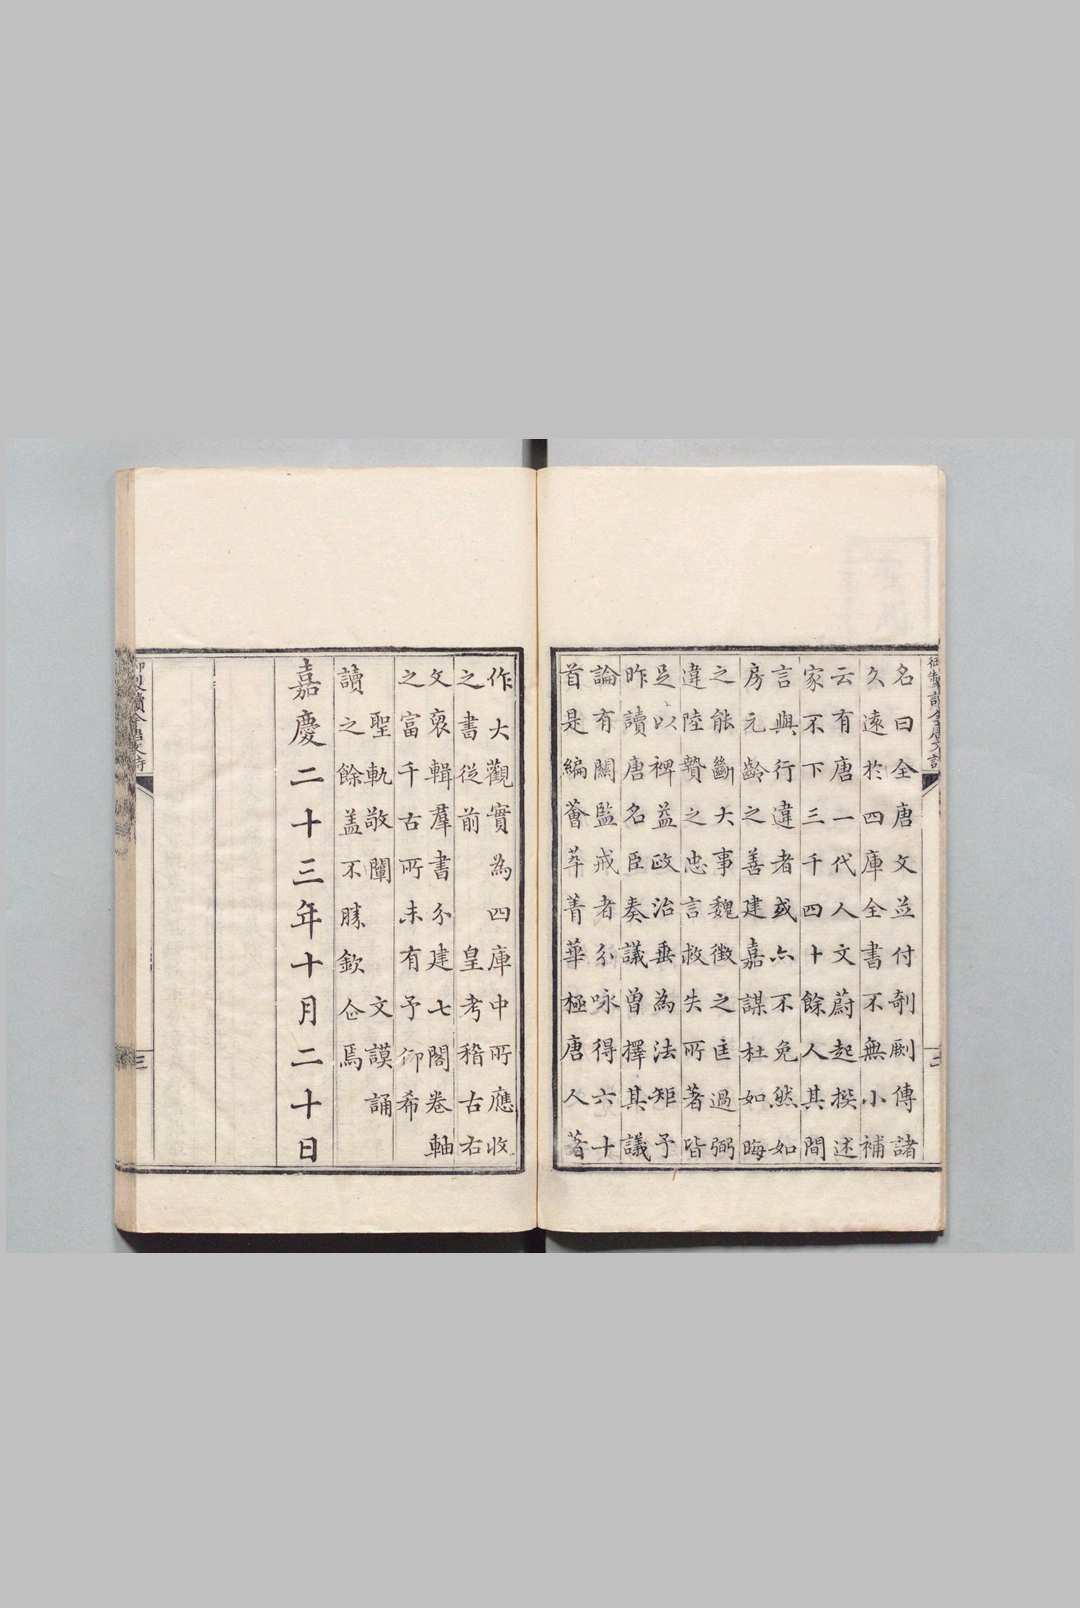 名曰全唐文並付剞劂傳諸
久遠於四庫全書不無小補
云有唐一代人文蔚起撰述
家不下三千四十餘人其間
言與行違者或亦不免然如
房元齡之善建嘉謀杜如晦
之能斷大事魏徵之匡過弼
違陸贄之忠言救失所著皆
足以裨益政治垂為法矩予
昨讀唐名臣奏議曾擇其議
論有關監戒者分咏得六十
首是編薈萃菁華極唐人著
作大觀實為四庫中所應收
之書從前 皇考稽古右
文裒輯羣書分建七閣卷軸
之富千古所未有予仰希
聖軌敬闡 文謨誦
讀之餘盖不勝欽企焉
嘉慶二十三年十月二十日